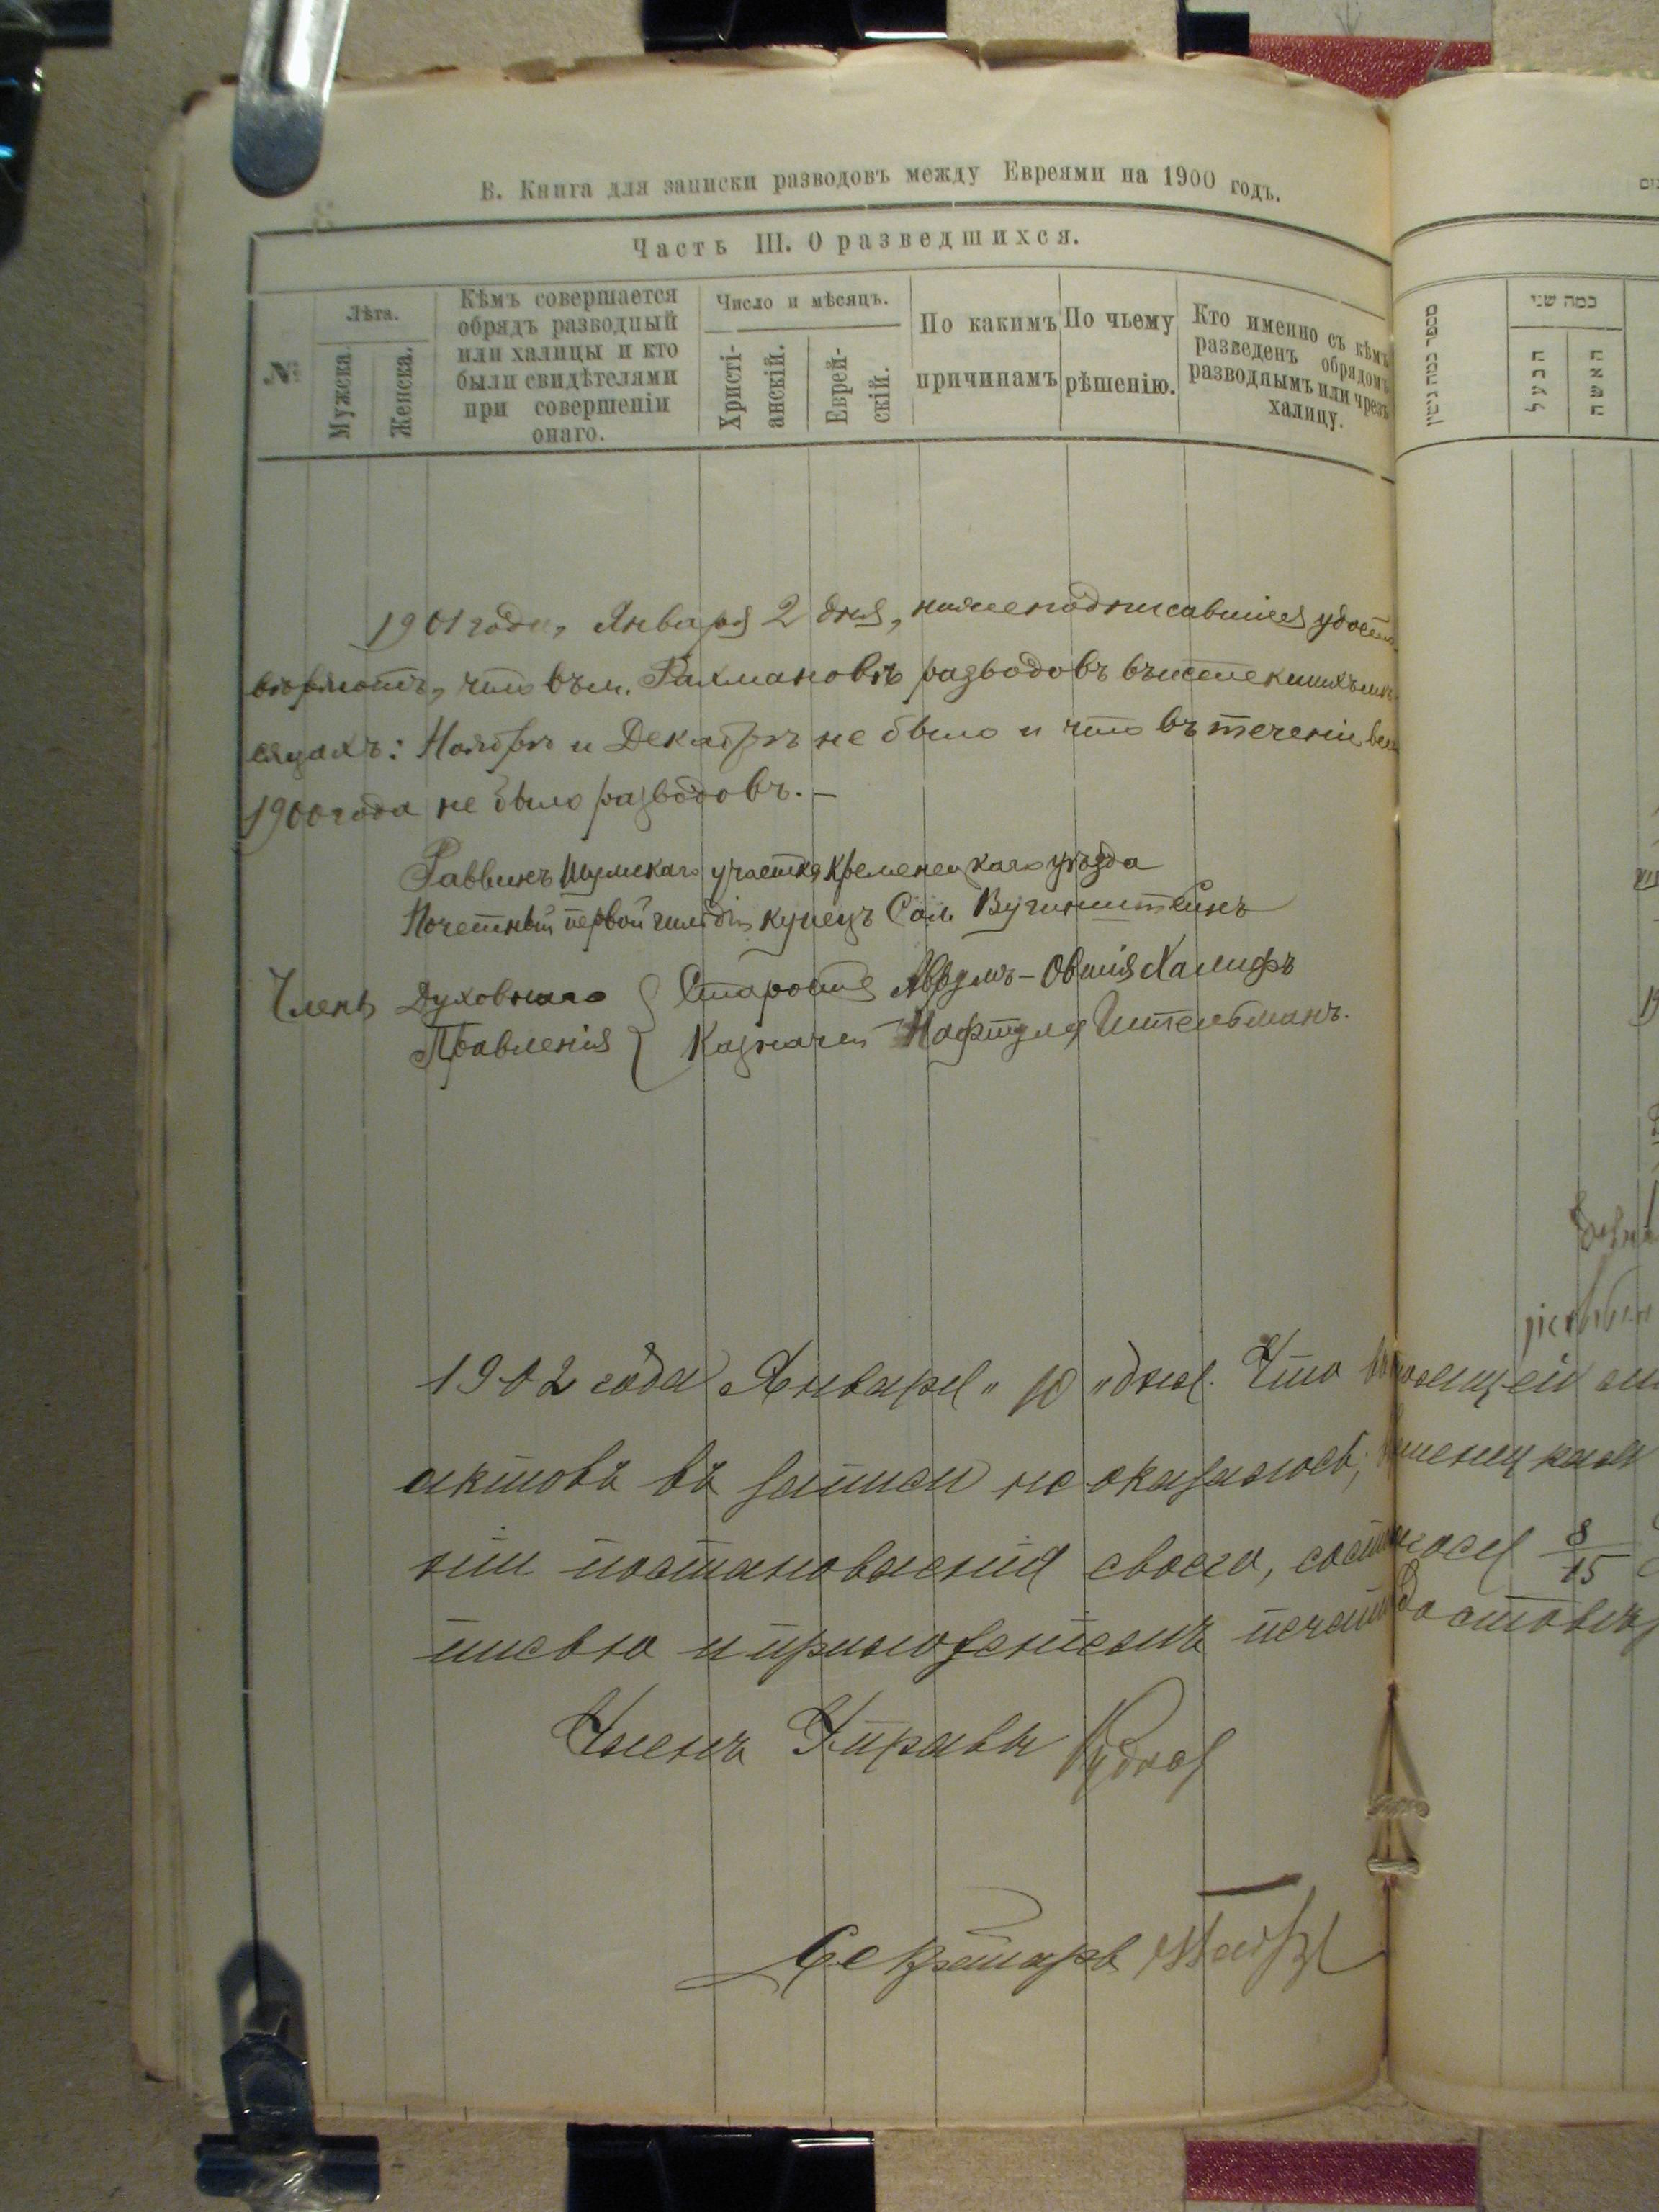 В. Книга для записки разводовъ между Евреями на 1900 годъ.
Часть III. О разведшихся.
№
Лѣта.
Мужска.
Женска.
Кѣмъ совершается
обрядъ разводный
или халицы и кто
были свидѣтелями
при совершеніи
онаго.
Число и мѣсяцъ.
Христі-
анскій.
Еврей-
скій.
По какимъ
причинамъ
По чьему
рѣшенію.
Кто именно съ кѣмъ
разведенъ обрядомъ
разводнымъ или чрезъ
халицу.
מספר כמה גיטין
כמה שני
הבעל
האשה
1901 года, Января 2 дня, нижеподписавшіеся удосто
вѣряютъ, что въ м. Рахмановѣ разводовъ въ истекшихъ мѣ
сяцахъ: Ноябрѣ и Декабрѣ не было и что въ теченіи всего
1900 года не было разводовъ. —
Раввинъ Шумскаго участка Кременецкаго уѣзда
Почетный первой гильдіи купецъ Сол.
Члены Духовнаго Староста Аврумъ-Овшія Халифъ
Правленія Казначей Нафтула Ительманъ.
1902 года Января „10„ дня. Что въ
актовъ въ записи не оказалось,
ніи постановленія своего, 8/15
писью и приложеніемъ печати
Членъ Управы
Секретарь